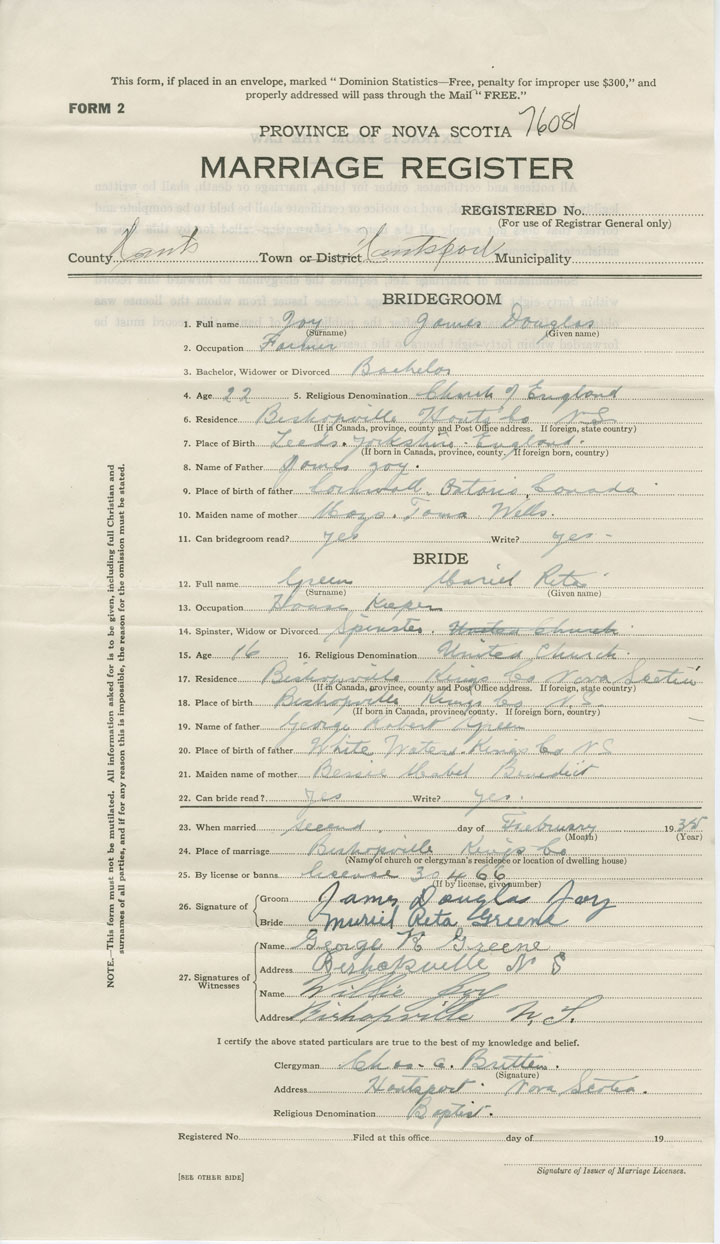 This form, if placed in an envelope, marked “ Dominion Statistics—Free, penalty for improper use $300,” and
properly addressed will pass through the Mail “ FREE.”
FORM 2
PROVINCE OF NOVA SCOTIA 76081
MARRIAGE REGISTER
REGISTERED No.
(For use of Registrar General only)
County Hants Town or District Hantsport Municipality
BRIDEGROOM
1. Full name Joy James Douglas
(Surname) (Given name)
2. Occupation Farmer
3. Bachelor, Widower or Divorced Bachelor
4. Age 22 5. Religious Denomination Church of England
6. Residence Bishopville Hants Co N.S
(If in Canada, province, county and Post Office address. If foreign, state country)
7. Place of Birth Leeds. Yorkshire England.
(If born in Canada, province, county. If foreign born, country)
8. Name of Father James Joy.
9. Place of birth of father Cornwall, Ontario, Canada
10. Maiden name of mother Wells.
11. Can bridegroom read? yes Write? yes -
BRIDE
12. Full name Green Muriel Reta
(Surname) (Given name)
13. Occupation House Keeper
14. Spinster, Widow or Divorced Spinster. United Church
15. Age 16 16. Religious Denomination United Church.
17. Residence Bishopville Kings Co Nova Scotia
(If in Canada, province, county and Post Office address. If foreign, state country)
18. Place of birth Bishopville Kings Co N.S.
(If born in Canada, province, county. If foreign born, country)
19. Name of father George Robert Green
20. Place of birth of father White Waters Kings Co N S
21. Maiden name of mother Bessie Mabel Benedict
22. Can bride read? Yes Write? yes.
23. When married second day of February 1935
(Month) (Year)
24. Place of marriage Bishopville Kings Co
(Name of church or clergyman's residence or location of dwelling house)
25. By license or banns license 30466
(If by license, give number)
26. Signature of Groom James Douglas Joy
Bride Muriel Reta Greene
27. Signatures of Witnesses
Name George R Greene
Address Bishopville N S
Name Willie Joy
Address Bishopville N.S.
I certify the above stated particulars are true to the best of my knowledge and belief.
Clergyman Chas. A. Britten.
(Signature)
Address Hantsport. Nova Scotia.
Religious Denomination Baptist.
Registered No. Filed at this office day of 19
Signature of Issuer of Marriage Licenses.
[SEE OTHER SIDE]
NOTE.—This form must not be mutilated. All information asked for is to be given, including full Christian and
surnames of all parties, and if for any reason this is impossible, the reason for the omission must be stated.